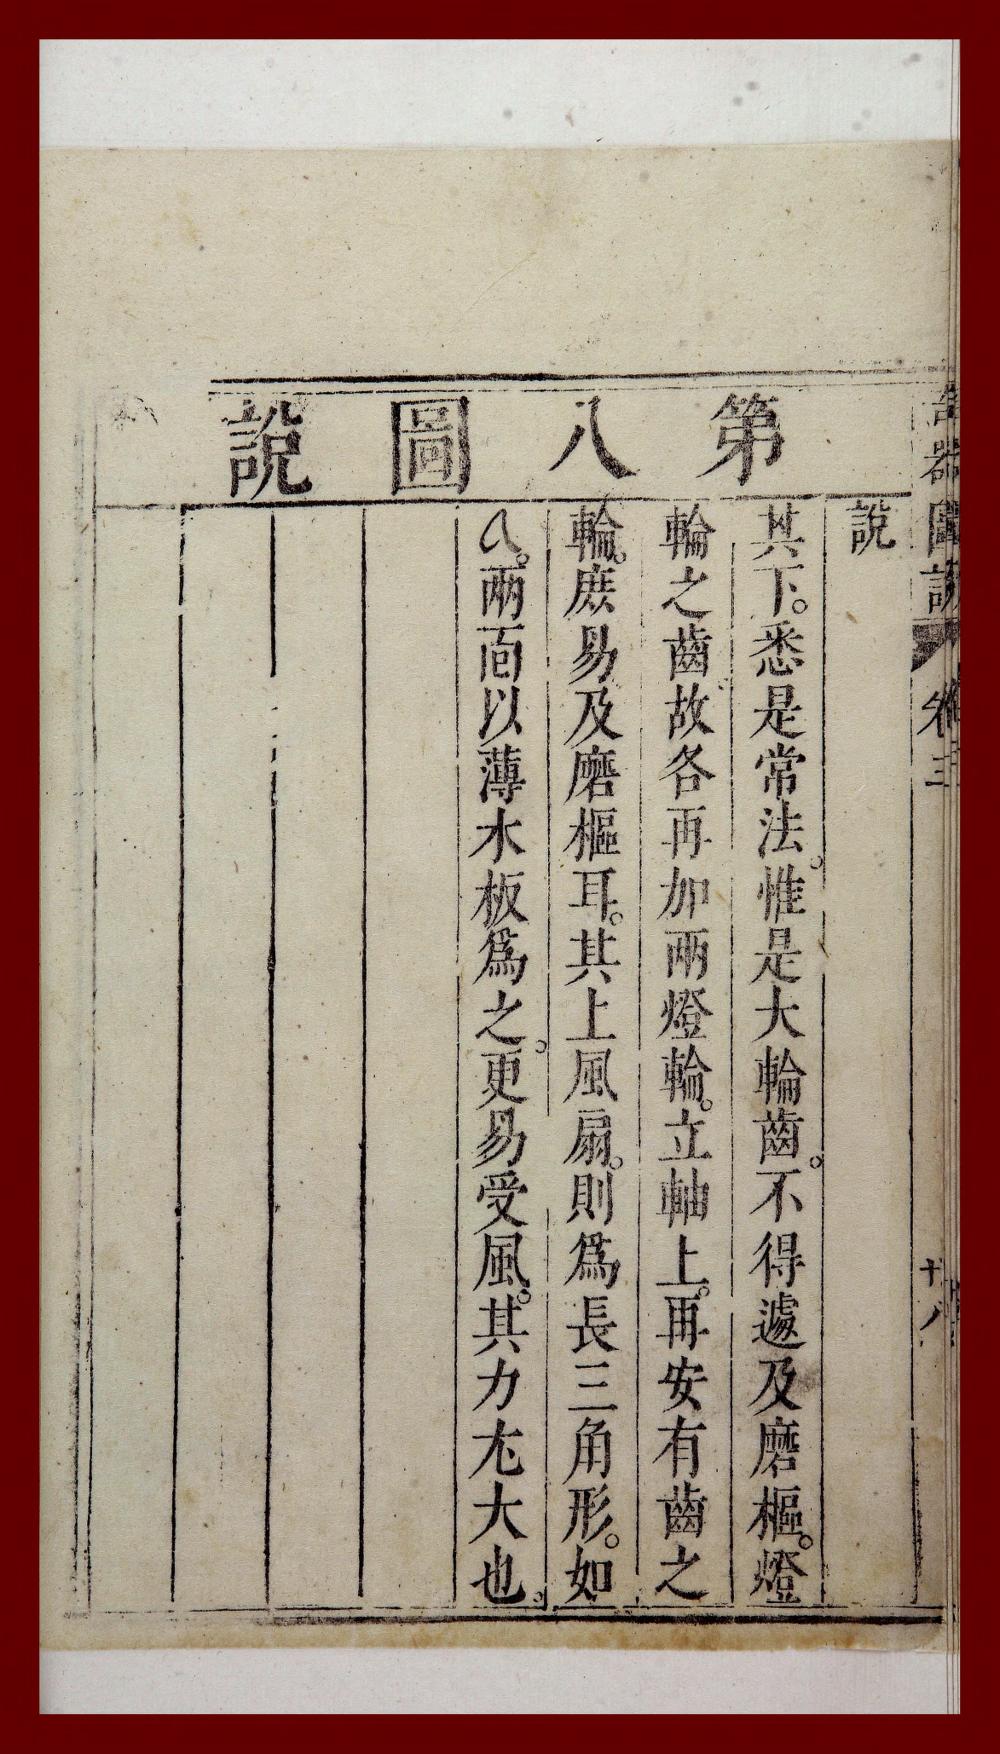 第八圖說
說
其下。悉是常法。惟是大輪齒。不得遽及磨樞。燈
輪之齒。故各再加兩燈輪。立軸上。再安有齒之
輪。庶易及磨樞耳。其上風扇。則爲長三角形。如
。兩面以薄木板爲之。更易受風。其力尤大也。
奇器圖說
卷三
十八